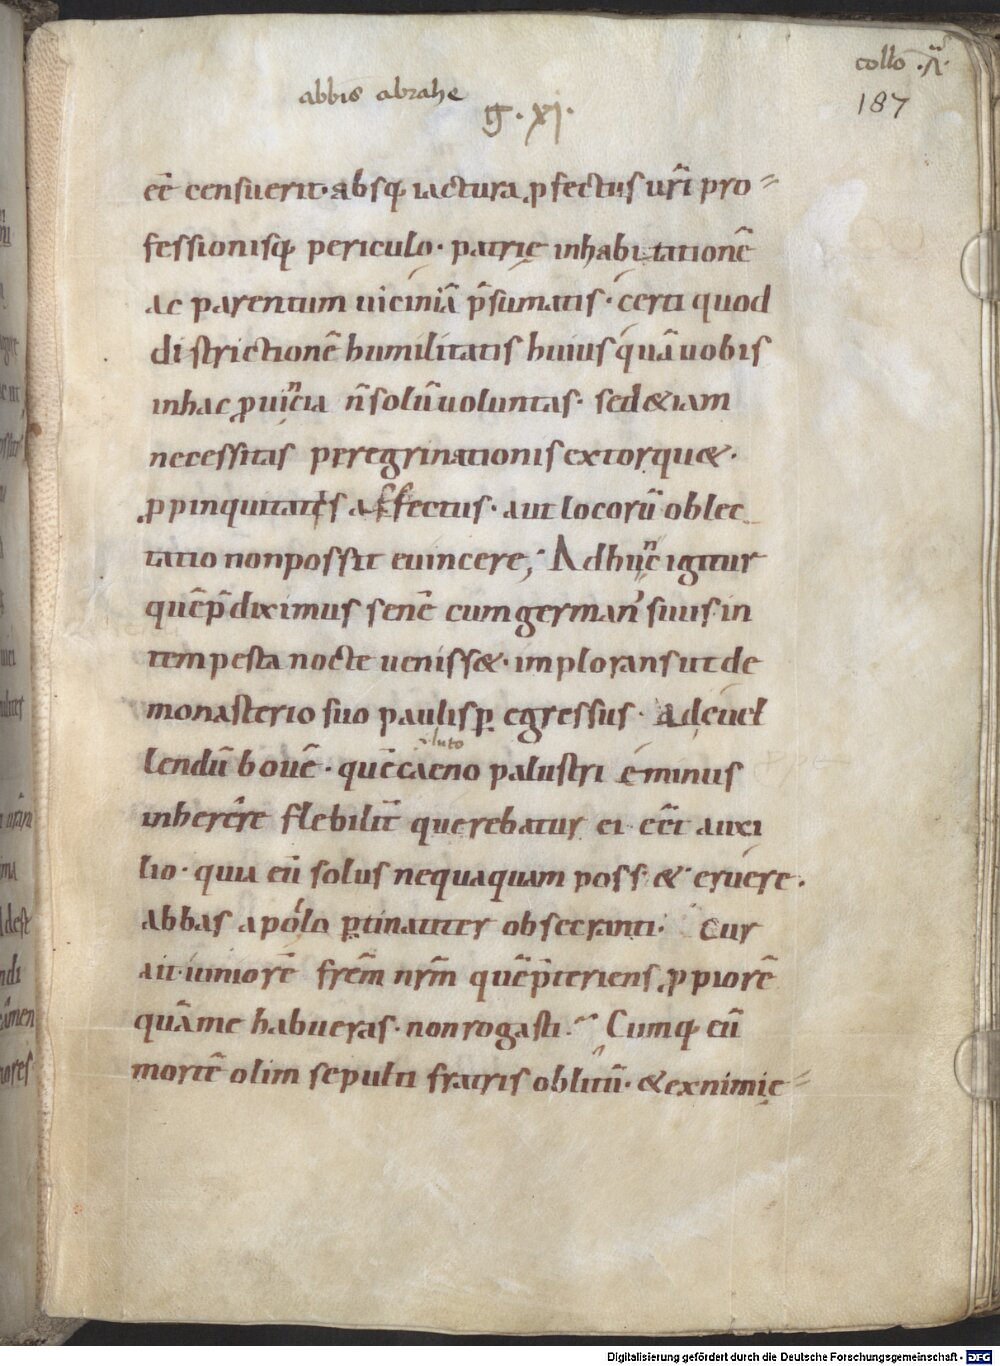 abbis abrahe
collo ·A·
187
g·xi·
ee censuerit· absq iactura pfectus uri pro
fessionisq periculo· patrię inhabitationē
ac parentum uiciniā p̄sumatis· certi quod
districtionē humilitatis huius quā uobis
inhac puicia n̄ solū uoluntas· sed &iam
necessitas peregrinationis extorqu&·
ppinquitatis affectus· aut locorū oblec
tatio nonpossit euincere; Adhuc igitur
quēp̄diximus senē cum german' suus in
tempesta nocte ueniss&· implorans ut de
monasterio suo paulisp egressus· adeuel
luto
lendū bouē· quēcaeno palustri eminus
inherere flebilit̄ querebatur ei eēt auxi
lio· quia eū solus nequaquam poss& eruere·
abbas apollo ptinaciter obsecranti· Cur
ait· iuniorē frēm nrm quēp̄teriens ppiorē
quāme habueras· nonrogasti· Cumq eū
mortē olim sepulti fratris oblitū· &exnimię
Digitalisierung gefördert durch die Deutsche Forschungsgemeinschaft - DFG